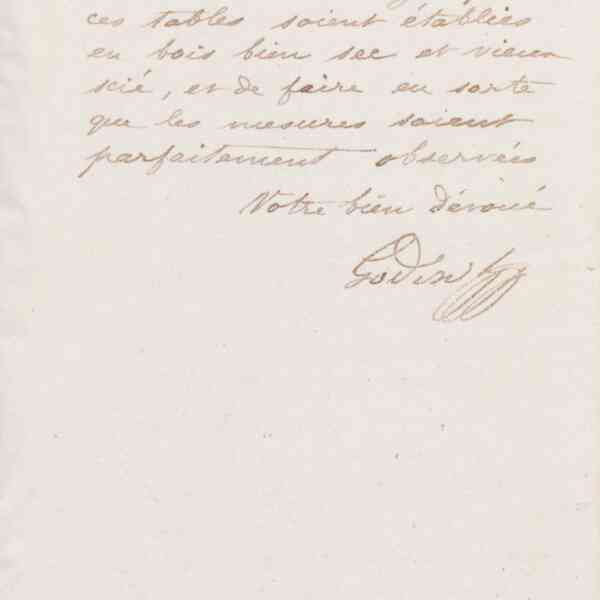 ces tables soient établies
en bois bien sec et vieux
scié, et de faire en sorte
que les mesures soient
parfaitement observées
Votre bien dévoué
Godin